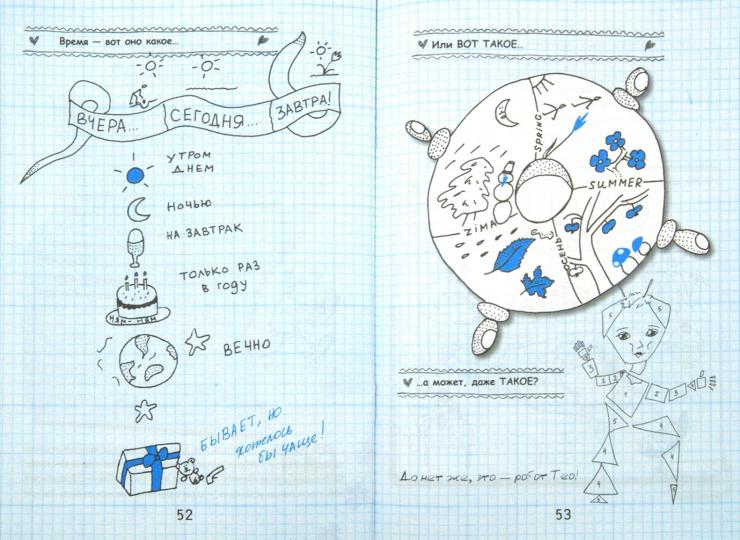 Время — вот оно какое...
ВЧЕРА... СЕГОДНЯ... ЗАВТРА!
УТРОМ
ДНЕМ
НОЧЬЮ
НА ЗАВТРАК
ТОЛЬКО РАЗ
В ГОДУ
НЯМ-НЯМ
ВЕЧНО
БЫВАЕТ, НО
ХОТЕЛОСЬ
БЫ ЧАЩЕ!
52
Или ВОТ ТАКОЕ...
SPRING
SUMMER
ZIMA
ОСЕНЬ
...а может, даже ТАКОЕ?
Да нет же, это — робот Тео!
53